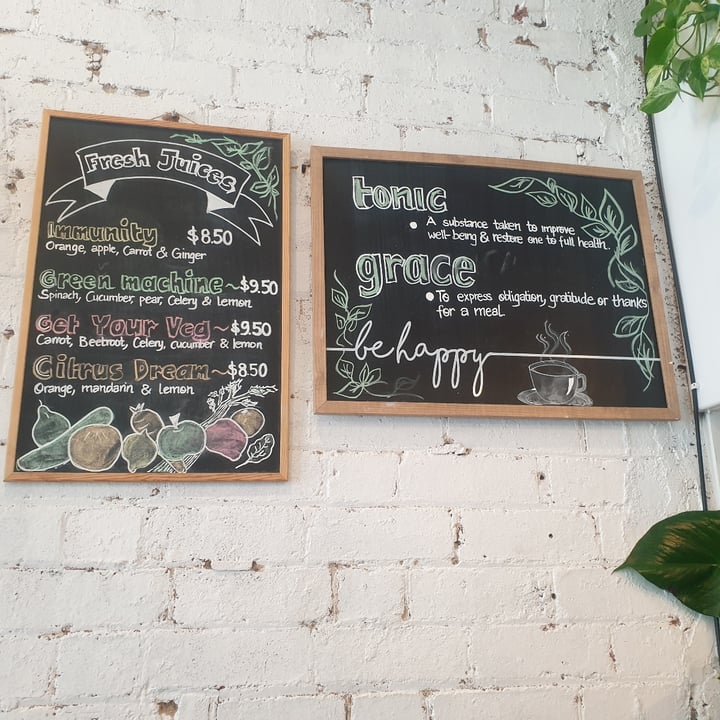 Fresh Juices
Immunity $8.50
Orange, apple, Carrot & Ginger
Green machine ~ $9.50
Spinach, Cucumber, pear, Celery & lemon
Get Your Veg ~ $9.50
Carrot, Beetroot, Celery, cucumber & lemon
Citrus Dream ~ $8.50
Orange, mandarin & lemon
tonic
• A substance taken to improve
well-being & restore one to full health.
grace
• To express obligation, gratitude or thanks
for a meal.
be happy